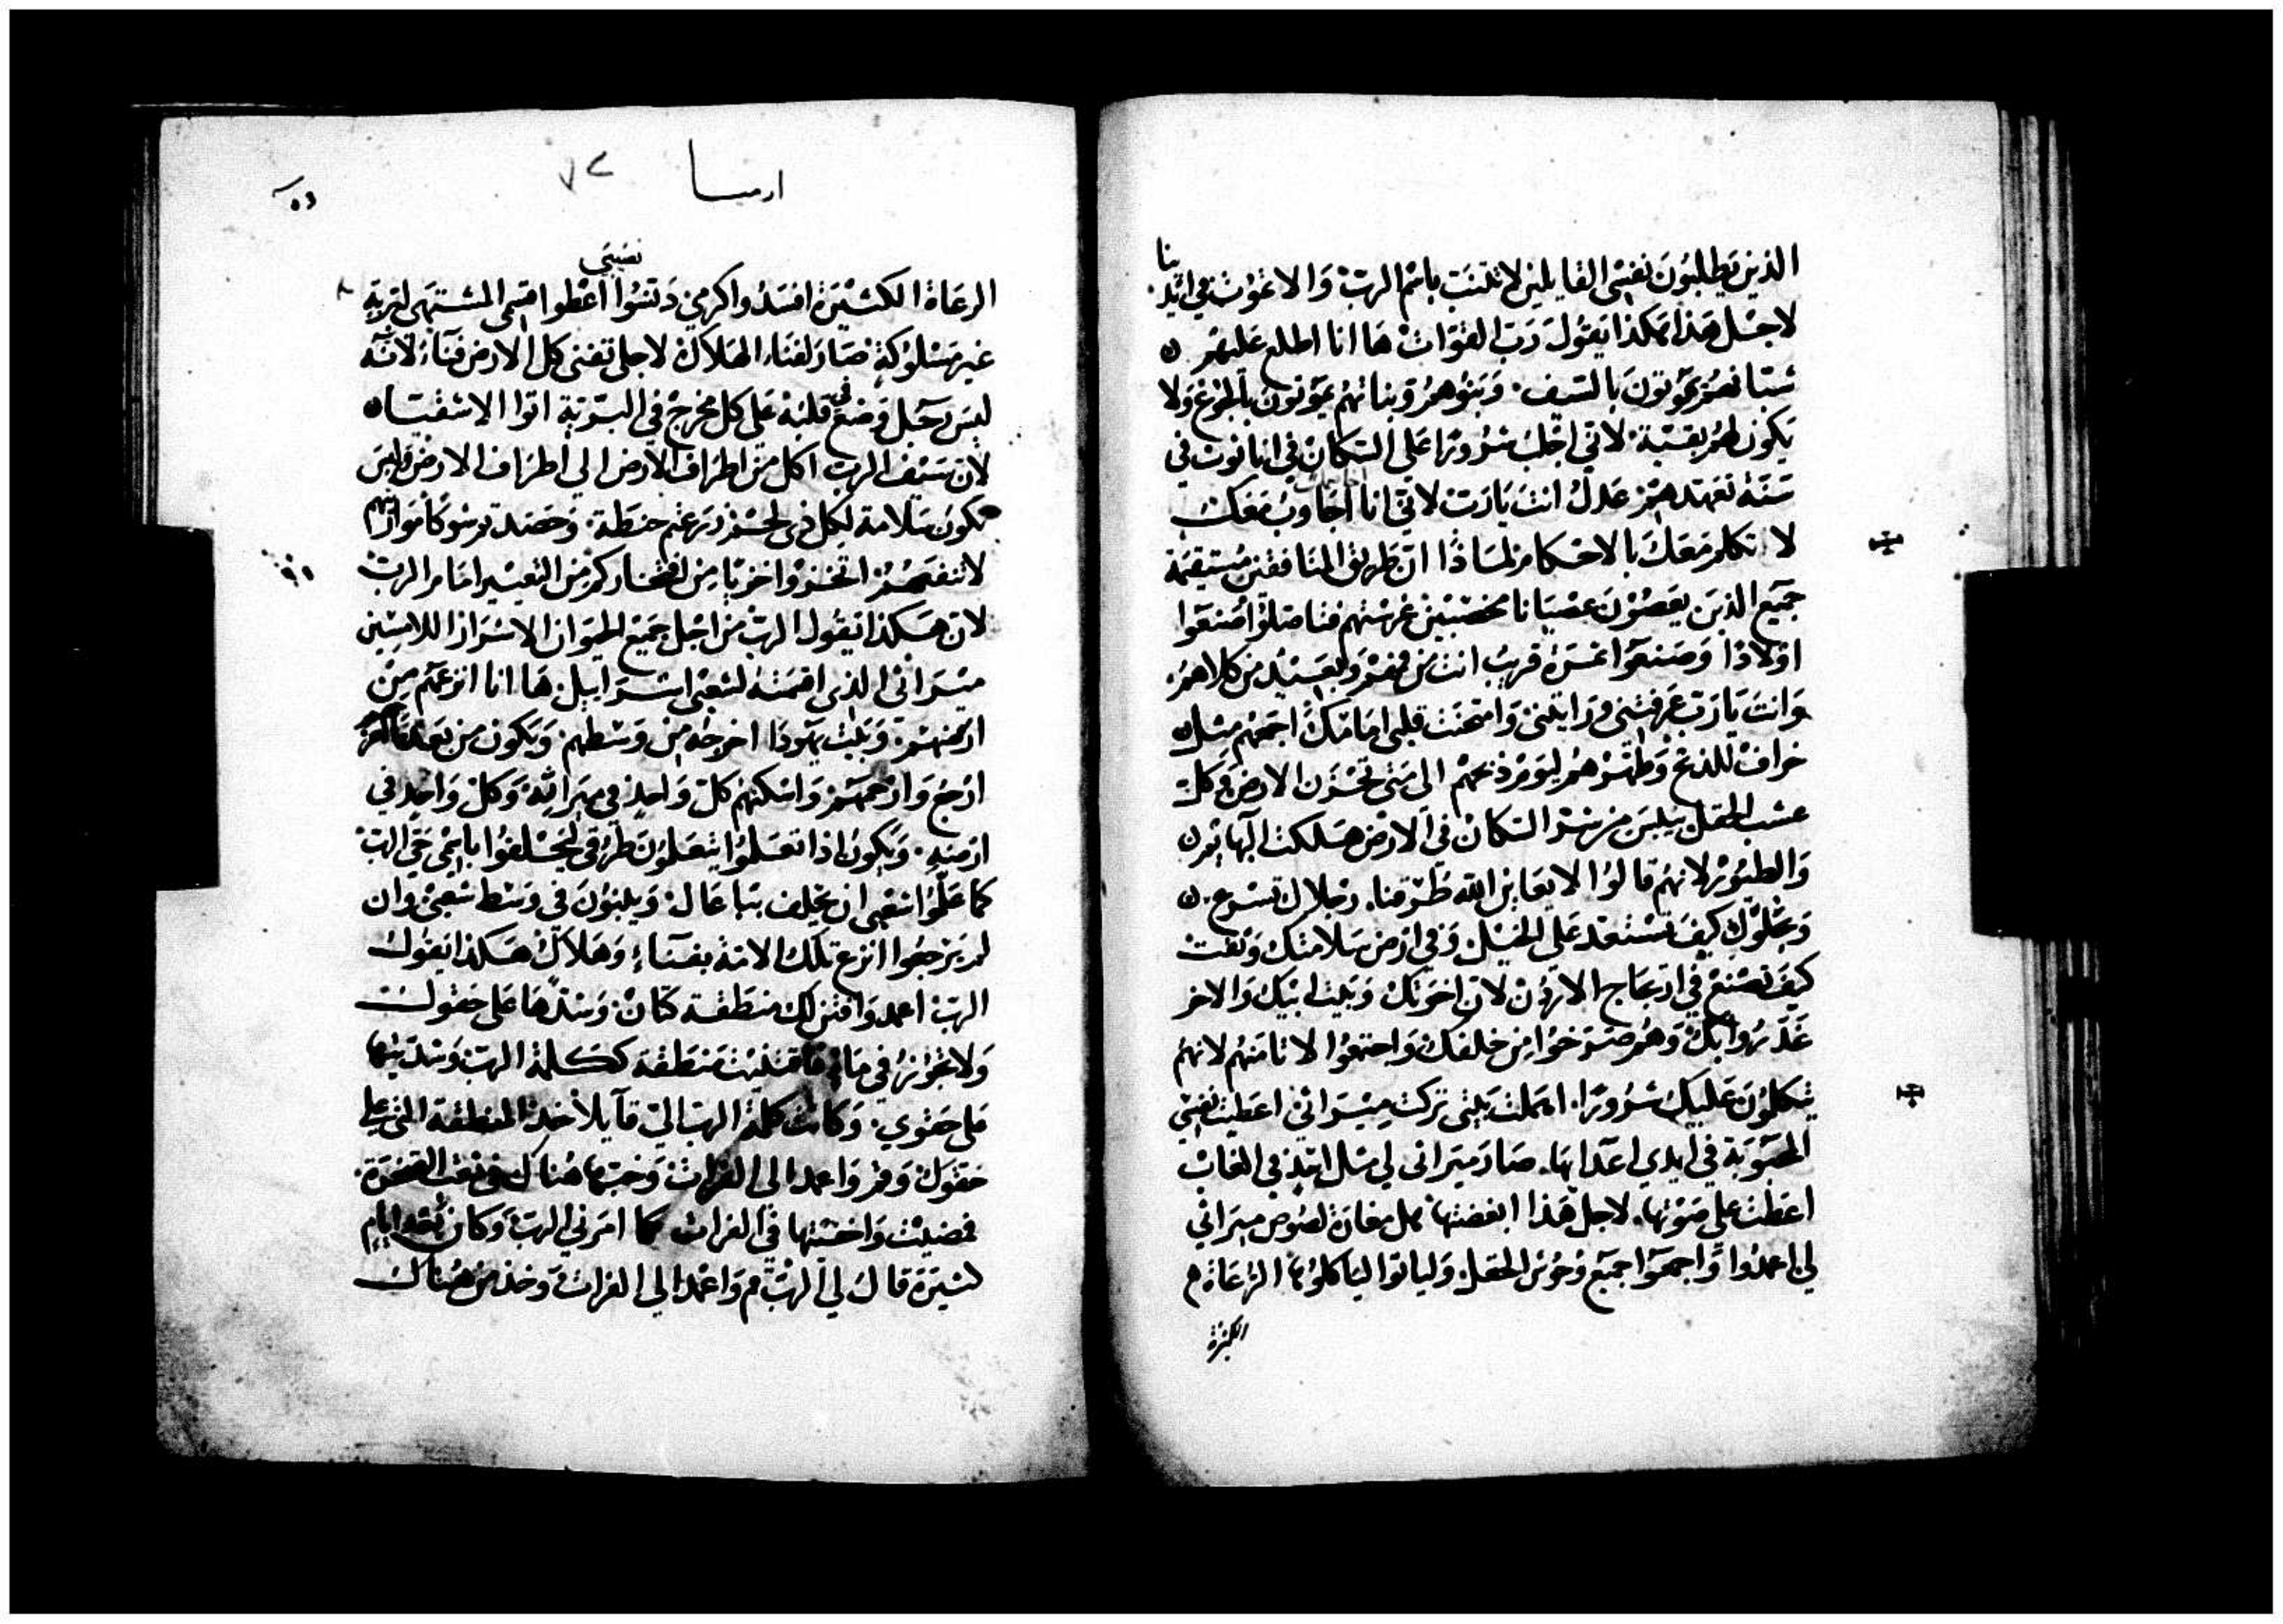 الذين يطلبون نفسي القايلين لا تتنب باسم الرب والا تموت في ايد
ينا
لاجل هذا هكذا يقول رب القوات ها انا اطلع عليهم
شبانهم يموتون بالسيف وبنوهم وبناتهم يموتون بالجوع ولا
يكون لهم بقية لاني اجلب شرورًا على السكان في اناثوث في
سنة تعهدهم عدل انت يا رب لاني انا اجاوب معك
لا تكلم معك بالاحكام لماذا ان طريق المنافقين مستقيمة
جميع الذين يعصون عصيانا مخصبين غرستهم فتاصلوا صنعوا
اولادًا وصنعوا ثمرة قريب انت من فمهم وبعيد من كلاهم
وانت يا رب عرفتني ورايتني وامتحنت قلبي امامك اجمعهم مثل
خراف للذبح وطهرهم ليوم ذبحهم الى متى تحزن الارض وكل
عشب الحقل ييبس من شر السكان في الارض هلكت البهايم
والطيور لانهم قالوا لا يعاين الله طرقنا رجلاك تسرع
ويحلوك كيف تستعد على الخيل وفي ارض سلامتك وثقت
كيف تصنع في ارتجاج الاردن لان اخوتك وبيت ابيك والاخر
غدروا بك وهم صرخوا من خلفك واجتمعوا لا تامنهم لانهم
يتكلون عليك شرورًا اهملت بيتي تركت ميراثي اعطيت نفسي
المحبوبة في ايدي اعدايها صار ميراثي لي مثل اسد في الغاب
اعطت علي صوتها لاجل هذا ابغضتها هل مغارة لصوص ميراثي
لي اعمدوا واجمعوا جميع وحوش الحقل ولياتوا لياكلوها الرعاة
الكثيرة
ارميا
٧٢
الرعاة الكثيرة افسدوا كرمي دنسوا اعطوا قسمي المشتهى لبرية
نصيبي
غير مسلوكة صار لفناء الهلاك لاجلي تفنى كل الارض فناء لانه
ليس رجل وضع في قلبه على كل مخرج في البرية اتوا الاشقياء
لان سيف الرب اكل من اطراف الارض الى اطراف الارض وليس
تكون سلامة لكل ذي لحم زرعتم حنطة وحصدتم شوكًا مواريثهم
لا تنفعهم اتخزوا خزيًا من افتخاركم من التعيير امام الرب
لان هكذا يقول الرب من اجل جميع الجيران الاشرار اللامسين
ميراثي الذي اقسمته لشعبي اسراييل ها انا انزعهم من
ارضهم وبيت يهوذا اخرجه من وسطهم ويكون من بعد
ارجع وارحمهم واسكنهم كل واحد في ميراثه وكل واحد في
ارضه ويكون اذا تعلموا يتعلمون طرقي ليحلفوا باسمي حي الرب
كما علموا شعبي ان يحلف بباعال ويبنون في وسط شعبي وان
لم يرجعوا انزع تلك الامة بفناء وهلاك هكذا يقول
الرب اعمد واقتن لك منطقة كتان وشدها على حقوك
ولا تجوز في ماء فاقتنيت منطقة ككلمة الرب وشديتها
على حقوي وكانت كلمة الرب الي قايلًا خذ المنطقة التي على
حقوك وقم واعمد الى الفرات وخبها هناك في نقب الصخرة
فمضيت واخبيتها في الفرات كما امرني الرب وكان بعد ايام
كثيرة قال لي الرب قم واعمد الى الفرات وخذ من هناك